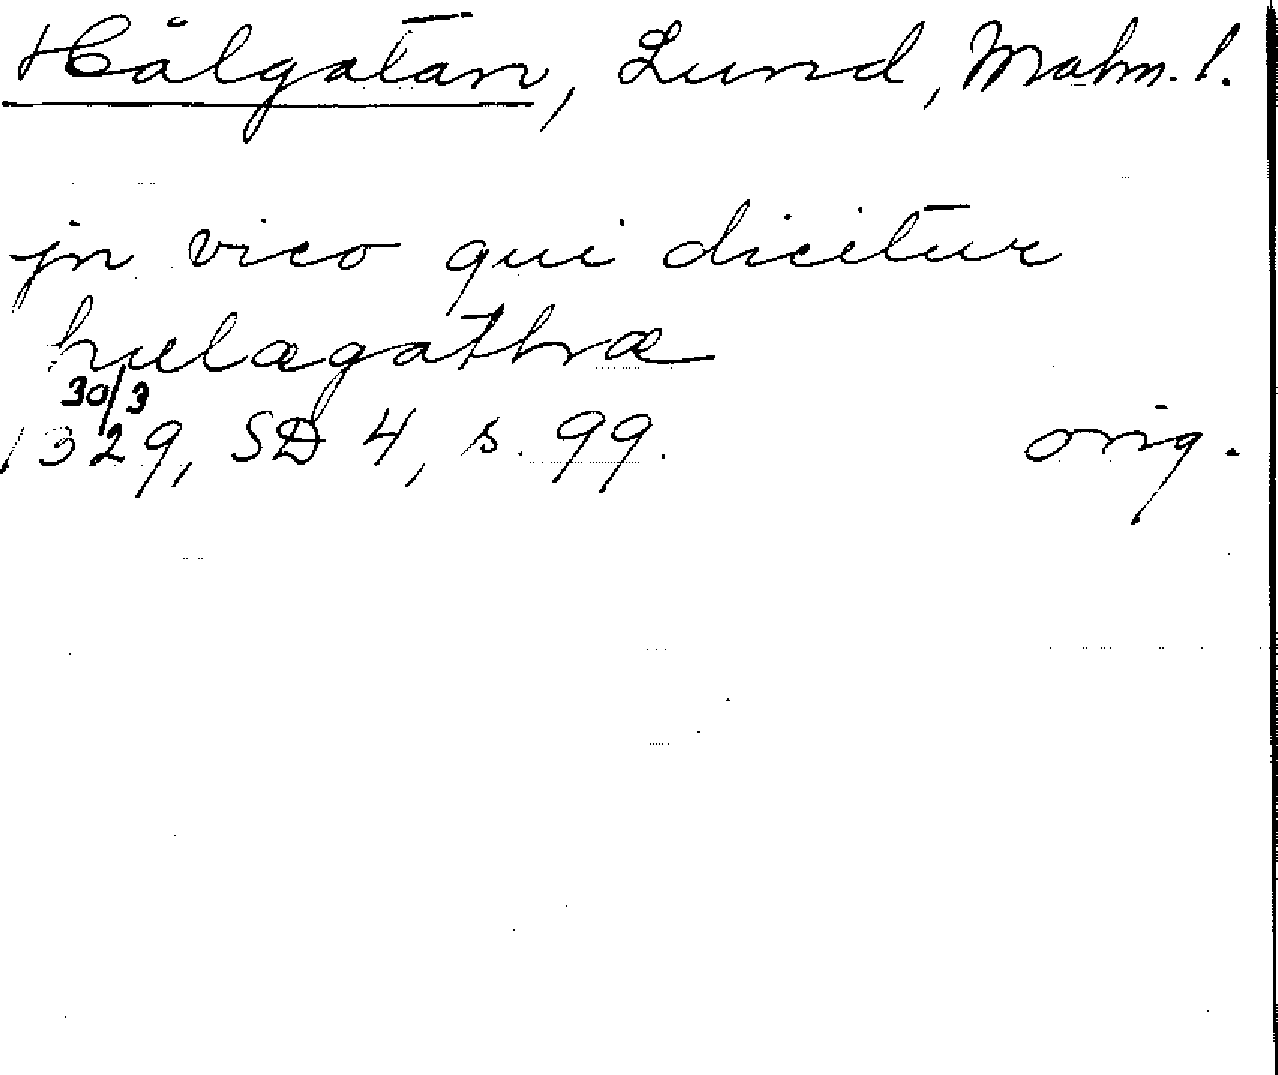 Hålgatan, Lund, Malm. l.
jn vico qui dicitur
hulægathræ
30/3
1329, SD 4, s. 99. orig.